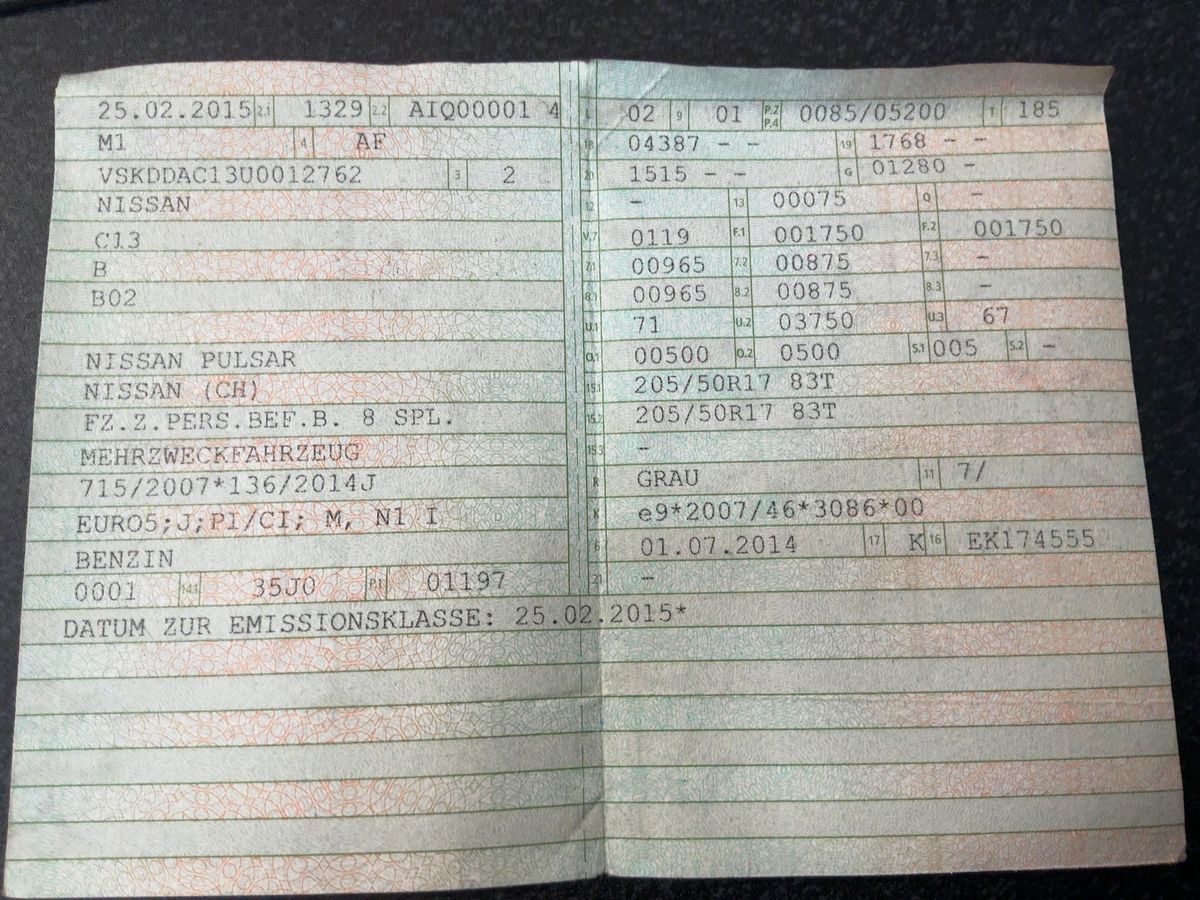 25.02.2015 2.1 1329 2.2 AIQ00001 4
M1 4 AF
VSKDDAC13U0012762 3 2
NISSAN
C13
B
B02
NISSAN PULSAR
NISSAN (CH)
FZ.Z.PERS.BEF.B. 8 SPL.
MEHRZWECKFAHRZEUG
715/2007*136/2014J
EURO5;J;P1/CI; M, N1 I
BENZIN
0001 14.1 35J0 P.1 01197
DATUM ZUR EMISSIONSKLASSE: 25.02.2015*
L 02 9 01 P.2 P.4 0085/05200 T 185
18 04387 - - 19 1768 - -
20 1515 - - G 01280 -
12 - 13 00075 Q -
V.7 0119 F.1 001750 F.2 001750
7.1 00965 7.2 00875 7.3 -
8.1 00965 8.2 00875 8.3 -
U.1 71 U.2 03750 U.3 67
O.1 00500 O.2 0500 S.1 005 S.2 -
15.1 205/50R17 83T
15.2 205/50R17 83T
15.3 -
R GRAU 11 7/
K e9*2007/46*3086*00
6 01.07.2014 17 K 16 EK174555
21 -